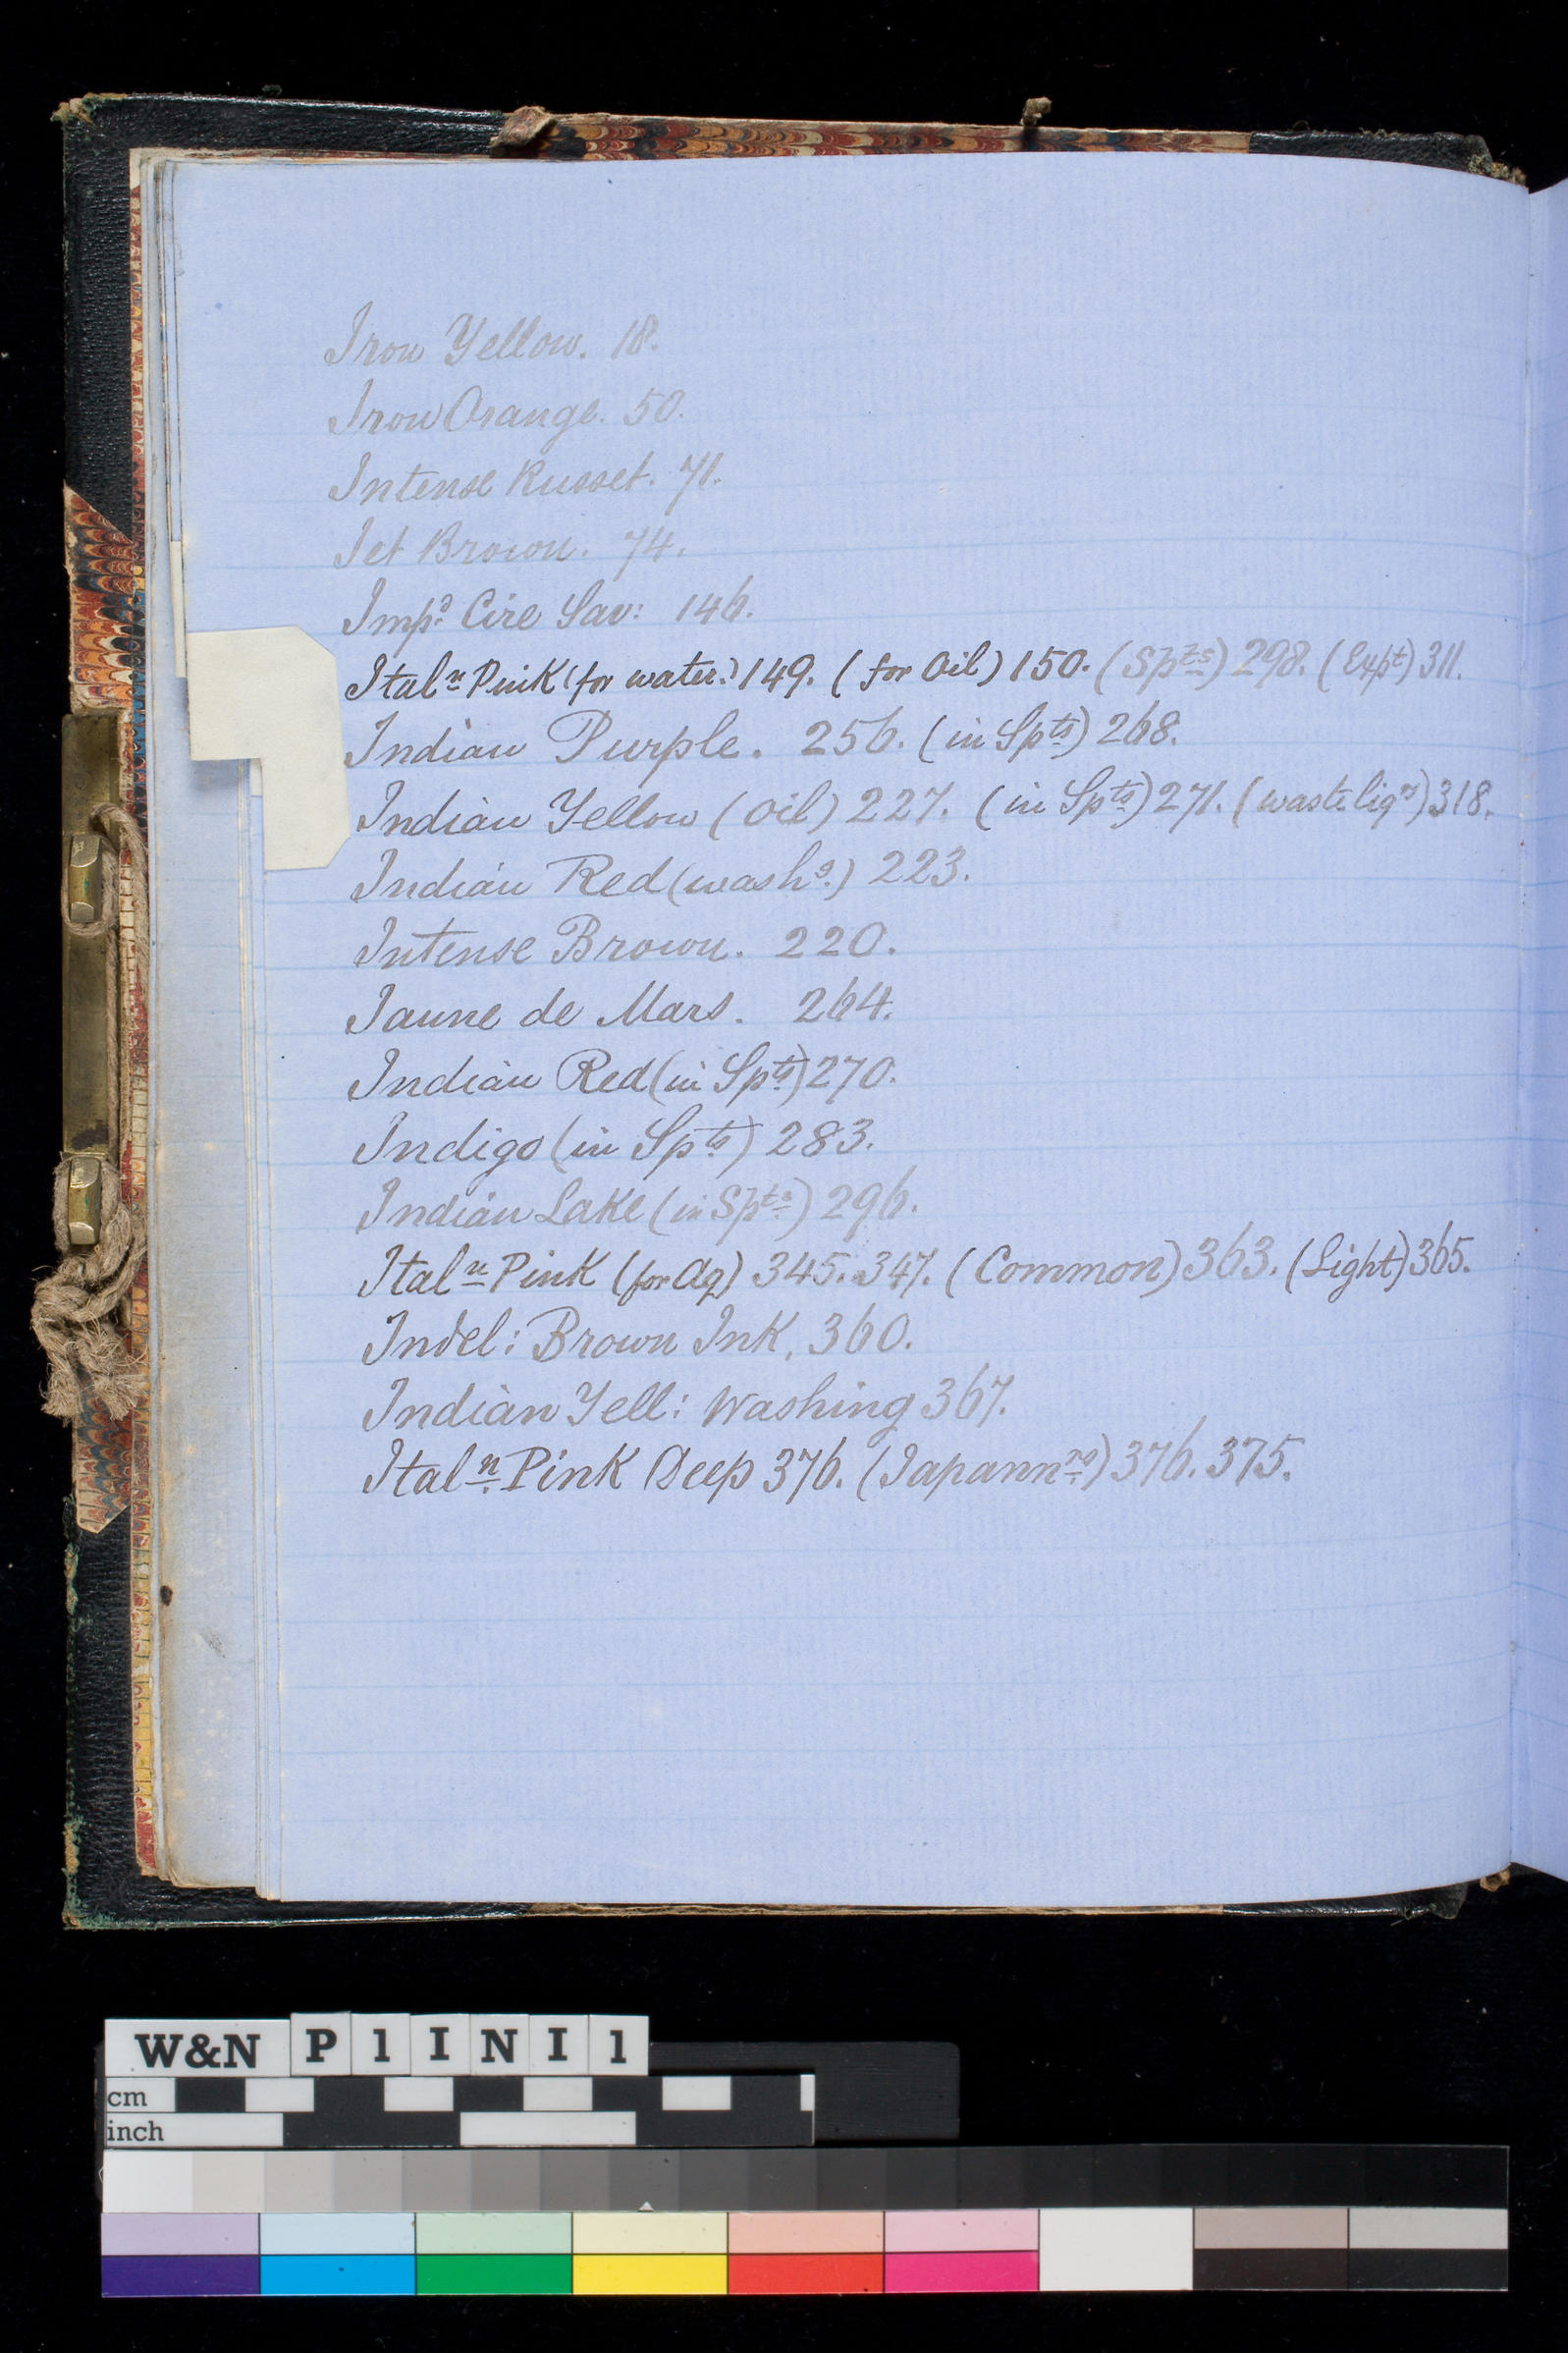 Iron Yellow. 18.
Iron Orange. 50.
Intense Russet. 71.
Jet Brown. 74.
Imp.d Cire Sav: 146.
Ital.n Pink (for water.) 149. (for Oil) 150. (Sp.ts) 298. (Exp.t) 311.
Indian Purple. 256. (in Sp.ts) 268.
Indian Yellow (Oil) 227. (in Sp.ts) 271. (waste liq.rs) 318.
Indian Red (wash.g) 223.
Intense Brown. 220.
Jaune de Mars. 264.
Indian Red (in Sp.ts) 270.
Indigo (in Sp.ts) 283.
Indian Lake (in Sp.ts) 296.
Ital.n Pink (for Aq) 345. 347. (Common) 363. (Light) 365.
Indel: Brown Ink, 360.
Indian Yell: Washing 367.
Ital.n Pink Deep 376. (Japann.rs) 376. 375.
W&N P 1 I N I 1
cm
inch